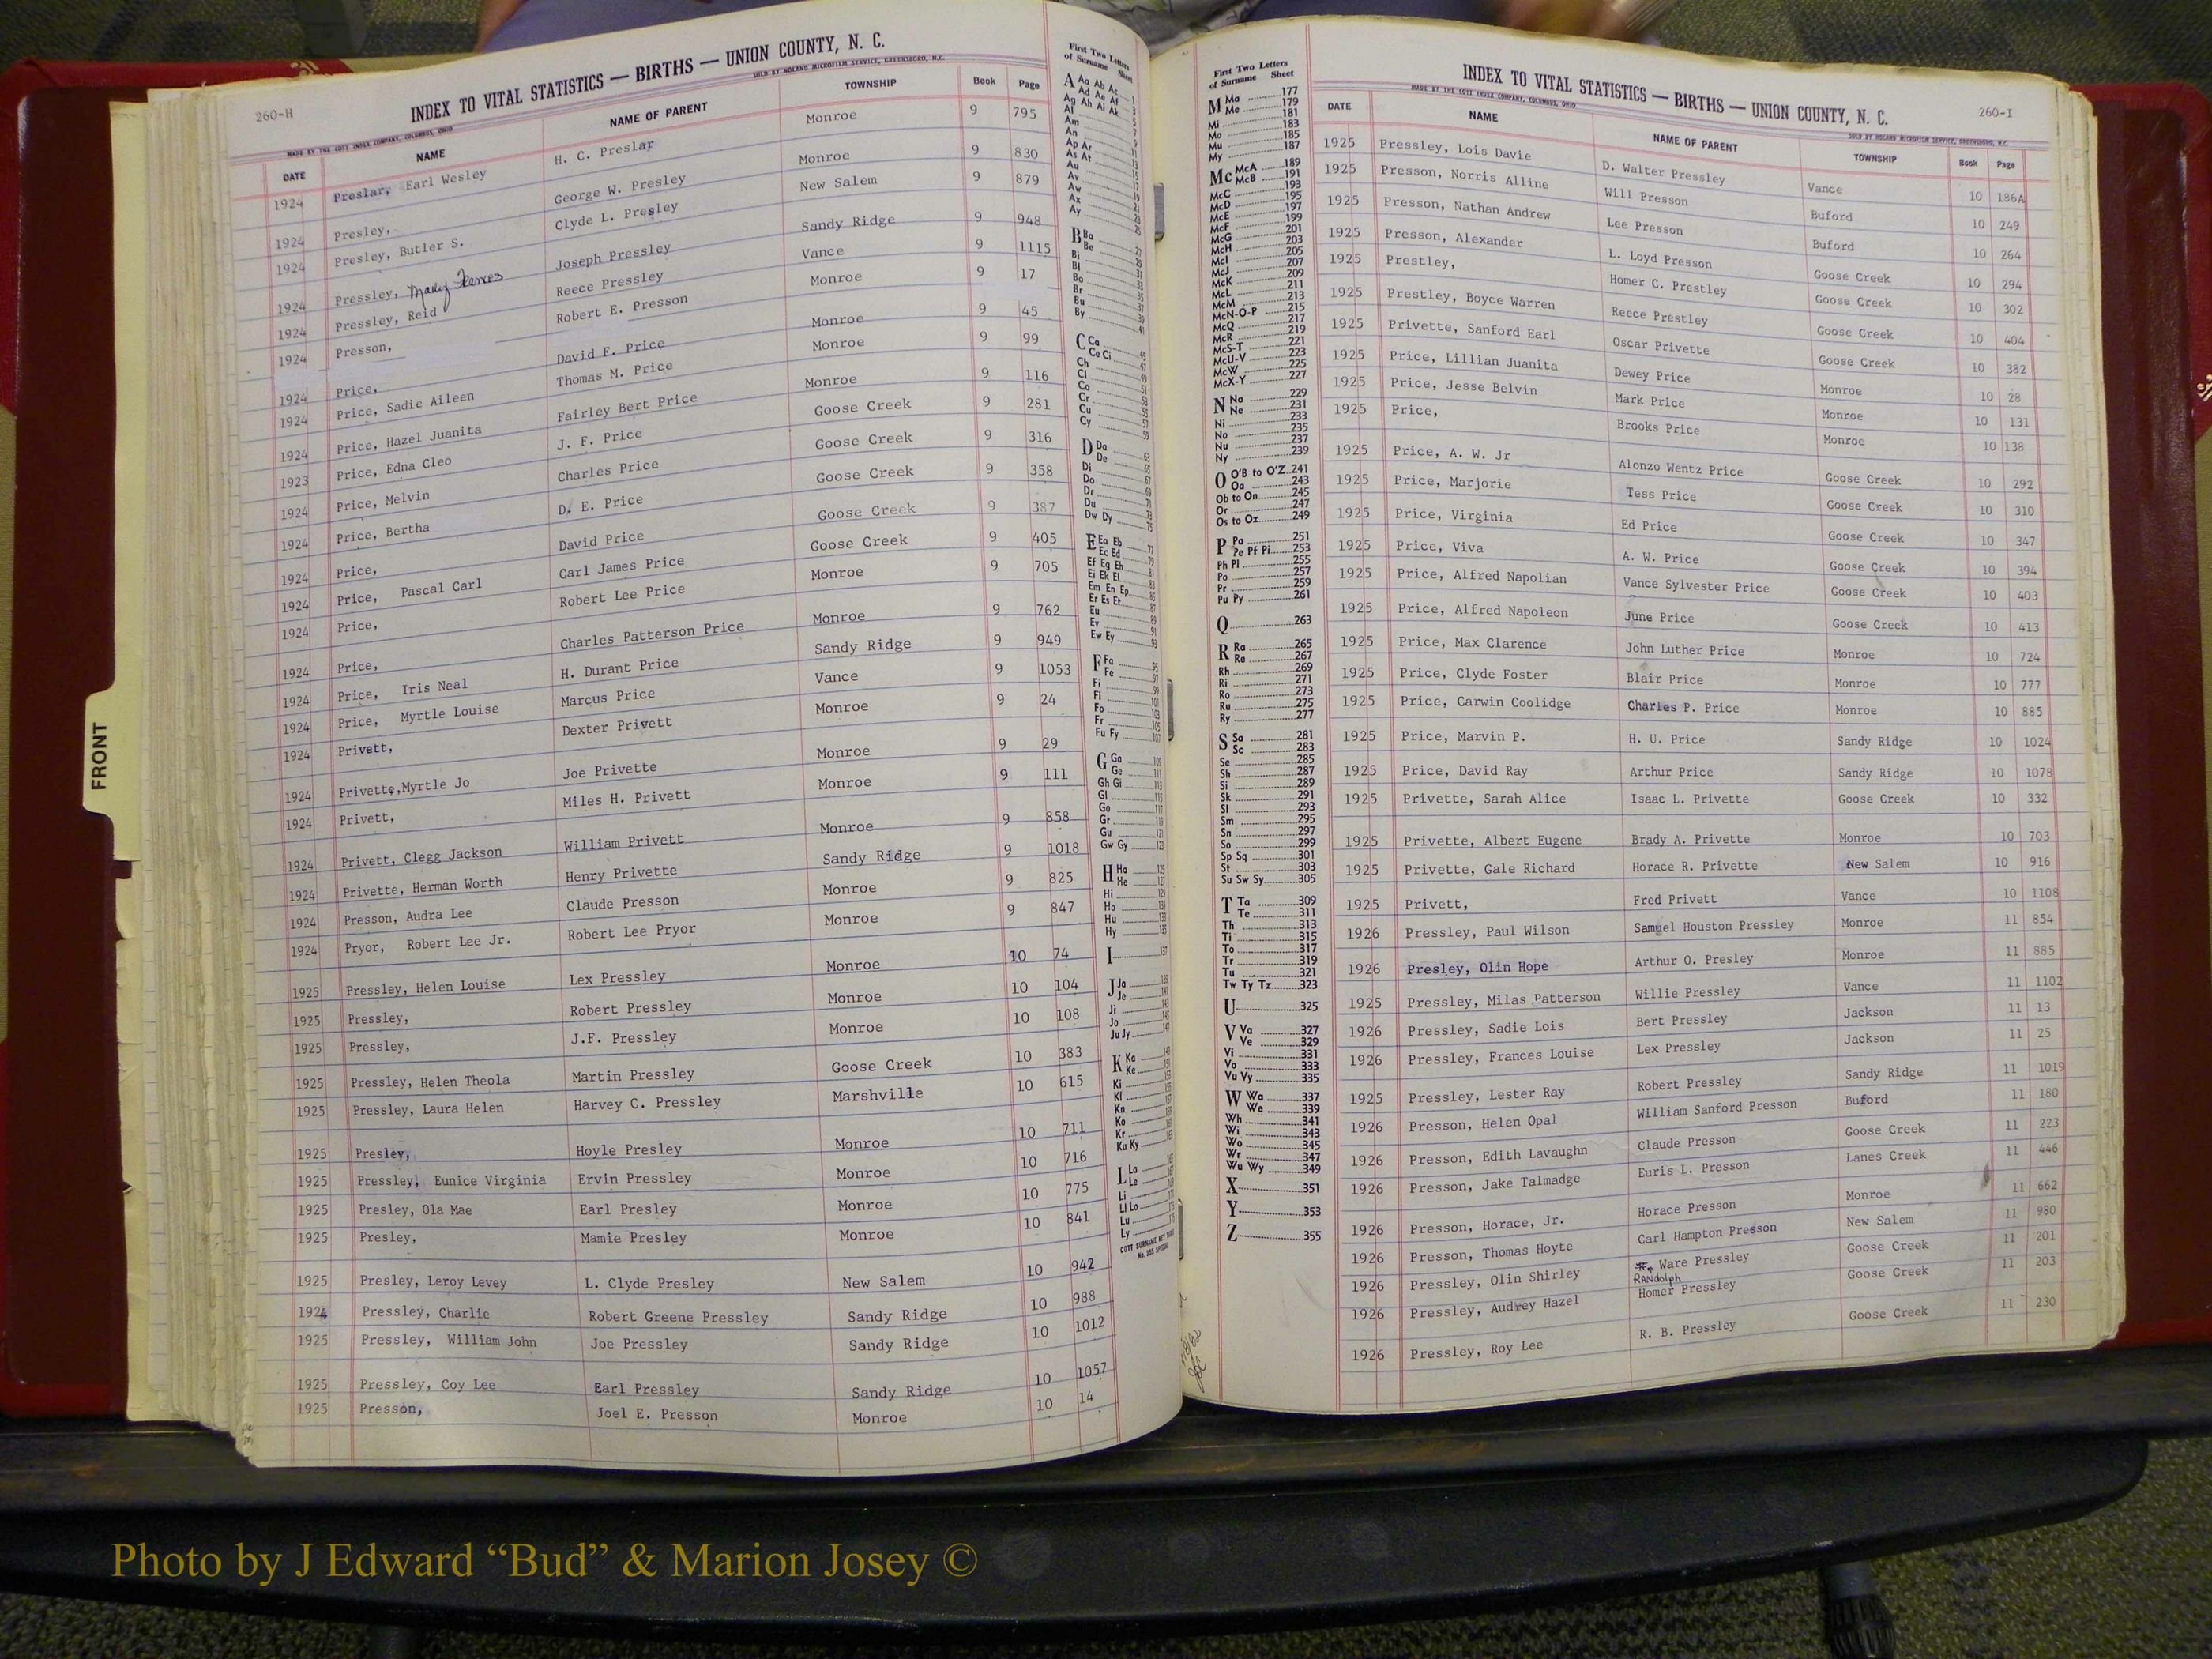 260-H
INDEX TO VITAL STATISTICS — BIRTHS — UNION COUNTY, N. C.
MADE BY THE COTT INDEX COMPANY, COLUMBUS, OHIO SOLD BY NOLAND MICROFILM SERVICE, GREENSBORO, N.C.
DATE NAME NAME OF PARENT TOWNSHIP Book Page
1924 Preslar, Earl Wesley H. C. Preslar Monroe 9 795
1924 Presley, George W. Presley Monroe 9 830
1924 Presley, Butler S. Clyde L. Presley New Salem 9 879
1924 Pressley, Mady Frances Joseph Pressley Sandy Ridge 9 948
1924 Pressley, Reid Reece Pressley Vance 9 1115
1924 Presson, Robert E. Presson Monroe 9 17
1924 Price, David F. Price Monroe 9 45
1924 Price, Sadie Aileen Thomas M. Price Monroe 9 99
1924 Price, Hazel Juanita Fairley Bert Price Monroe 9 116
1923 Price, Edna Cleo J. F. Price Goose Creek 9 281
1924 Price, Melvin Charles Price Goose Creek 9 316
1924 Price, Bertha D. E. Price Goose Creek 9 358
1924 Price, David Price Goose Creek 9 387
1924 Price, Pascal Carl Carl James Price Goose Creek 9 405
1924 Price, Robert Lee Price Monroe 9 705
1924 Price, Charles Patterson Price Monroe 9 762
1924 Price, Iris Neal H. Durant Price Sandy Ridge 9 949
1924 Price, Myrtle Louise Marcus Price Vance 9 1053
1924 Privett, Dexter Privett Monroe 9 24
1924 Privette,Myrtle Jo Joe Privette Monroe 9 29
1924 Privett, Miles H. Privett Monroe 9 111
1924 Privett, Clegg Jackson William Privett Monroe 9 858
1924 Privette, Herman Worth Henry Privette Sandy Ridge 9 1018
1924 Presson, Audra Lee Claude Presson Monroe 9 825
1924 Pryor, Robert Lee Jr. Robert Lee Pryor Monroe 9 847
1925 Pressley, Helen Louise Lex Pressley Monroe 10 74
1925 Pressley, Robert Pressley Monroe 10 104
1925 Pressley, J.F. Pressley Monroe 10 108
1925 Pressley, Helen Theola Martin Pressley Goose Creek 10 383
1925 Pressley, Laura Helen Harvey C. Pressley Marshville 10 615
1925 Presley, Hoyle Presley Monroe 10 711
1925 Pressley, Eunice Virginia Ervin Pressley Monroe 10 716
1925 Presley, Ola Mae Earl Presley Monroe 10 775
1925 Presley, Mamie Presley Monroe 10 841
1925 Presley, Leroy Levey L. Clyde Presley New Salem 10 942
1924 Pressley, Charlie Robert Greene Pressley Sandy Ridge 10 988
1925 Pressley, William John Joe Pressley Sandy Ridge 10 1012
1925 Pressley, Coy Lee Earl Pressley Sandy Ridge 10 1057
1925 Presson, Joel E. Presson Monroe 10 14
FRONT
First Two Letters
of Surname Sheet
A Aa Ab Ac
Ad Ae Af
Ag Ah Ai Ak
Al
Am
An
Ap Ar
As At
Au
Av
Aw
Ax
Ay
B Ba
Be
Bi
Bl
Bo
Br
Bu
By
C Ca
Ce Ci
Ch
Cl
Co
Cr
Cu
Cy
D Da
De
Di
Do
Dr
Du
Dw Dy
E Ea Eb
Ec Ed
Ef Eg Eh
Ei Ek El
Em En Ep
Er Es Et
Eu
Ev
Ew Ey
F Fa
Fe
Fi
Fl
Fo
Fr
Fu Fy
G Ga
Ge
Gh Gi
Gl
Go
Gr
Gu
Gw Gy
H Ha
He
Hi
Ho
Hu
Hy
I
J Ja
Je
Ji
Jo
Ju Jy
K Ka
Ke
Ki
Kl
Kn
Ko
Kr
Ku Ky
L La
Le
Li
Ll Lo
Lu
Ly
First Two Letters
of Surname Sheet
M Ma 177
Me 179
Mi 181
Mo 183
Mu 185
My 187
Mc McA 189
McB 191
McC 193
McD 195
McE 197
McF 199
McG 201
McH 203
McI 205
McJ 207
McK 209
McL 211
McM 213
McN-O-P 215
McQ 217
McR 219
McS-T 221
McU-V 223
McW 225
McX-Y 227
N Na 229
Ne 231
Ni 233
No 235
Nu 237
Ny 239
O O'B to O'Z 241
Oa 243
Ob to On 245
Or 247
Os to Oz 249
P Pa 251
Pe Pf Pi 253
Ph Pl 255
Po 257
Pr 259
Pu Py 261
Q 263
R Ra 265
Re 267
Rh 269
Ri 271
Ro 273
Ru 275
Ry 277
S Sa 281
Sc 283
Se 285
Sh 287
Si 289
Sk 291
Sl 293
Sm 295
Sn 297
So 299
Sp Sq 301
St 303
Su Sw Sy 305
T Ta 309
Te 311
Th 313
Ti 315
To 317
Tr 319
Tu 321
Tw Ty Tz 323
U 325
V Va 327
Ve 329
Vi 331
Vo 333
Vu Vy 335
W Wa 337
We 339
Wh 341
Wi 343
Wo 345
Wr 347
Wu Wy 349
X 351
Y 353
Z 355
INDEX TO VITAL STATISTICS — BIRTHS — UNION COUNTY, N. C.
260-I
MADE BY THE COTT INDEX COMPANY, COLUMBUS, OHIO SOLD BY NOLAND MICROFILM SERVICE, GREENSBORO, N.C.
DATE NAME NAME OF PARENT TOWNSHIP Book Page
1925 Pressley, Lois Davie D. Walter Pressley Vance 10 186A
1925 Presson, Norris Alline Will Presson Buford 10 249
1925 Presson, Nathan Andrew Lee Presson Buford 10 264
1925 Presson, Alexander L. Loyd Presson Goose Creek 10 294
1925 Prestley, Homer C. Prestley Goose Creek 10 302
1925 Prestley, Boyce Warren Reece Prestley Goose Creek 10 404
1925 Privette, Sanford Earl Oscar Privette Goose Creek 10 382
1925 Price, Lillian Juanita Dewey Price Monroe 10 28
1925 Price, Jesse Belvin Mark Price Monroe 10 131
1925 Price, Brooks Price Monroe 10 138
1925 Price, A. W. Jr Alonzo Wentz Price Goose Creek 10 292
1925 Price, Marjorie Tess Price Goose Creek 10 310
1925 Price, Virginia Ed Price Goose Creek 10 347
1925 Price, Viva A. W. Price Goose Creek 10 394
1925 Price, Alfred Napolian Vance Sylvester Price Goose Creek 10 403
1925 Price, Alfred Napoleon June Price Goose Creek 10 413
1925 Price, Max Clarence John Luther Price Monroe 10 724
1925 Price, Clyde Foster Blair Price Monroe 10 777
1925 Price, Carwin Coolidge Charles P. Price Monroe 10 885
1925 Price, Marvin P. H. U. Price Sandy Ridge 10 1024
1925 Price, David Ray Arthur Price Sandy Ridge 10 1078
1925 Privette, Sarah Alice Isaac L. Privette Goose Creek 10 332
1925 Privette, Albert Eugene Brady A. Privette Monroe 10 703
1925 Privette, Gale Richard Horace R. Privette New Salem 10 916
1925 Privett, Fred Privett Vance 10 1108
1926 Pressley, Paul Wilson Samuel Houston Pressley Monroe 11 854
1926 Presley, Olin Hope Arthur O. Presley Monroe 11 885
1925 Pressley, Milas Patterson Willie Pressley Vance 11 1102
1926 Pressley, Sadie Lois Bert Pressley Jackson 11 13
1926 Pressley, Frances Louise Lex Pressley Jackson 11 25
1925 Pressley, Lester Ray Robert Pressley Sandy Ridge 11 1019
1926 Presson, Helen Opal William Sanford Presson Buford 11 180
1926 Presson, Edith Lavaughn Claude Presson Goose Creek 11 223
1926 Presson, Jake Talmadge Euris L. Presson Lanes Creek 11 446
1926 Presson, Horace, Jr. Horace Presson Monroe 11 662
1926 Presson, Thomas Hoyte Carl Hampton Presson New Salem 11 980
1926 Pressley, Olin Shirley Ware Pressley Goose Creek 11 201
RANdolph
1926 Pressley, Audrey Hazel Homer Pressley Goose Creek 11 203
1926 Pressley, Roy Lee R. B. Pressley Goose Creek 11 230
Photo by J Edward “Bud” & Marion Josey ©